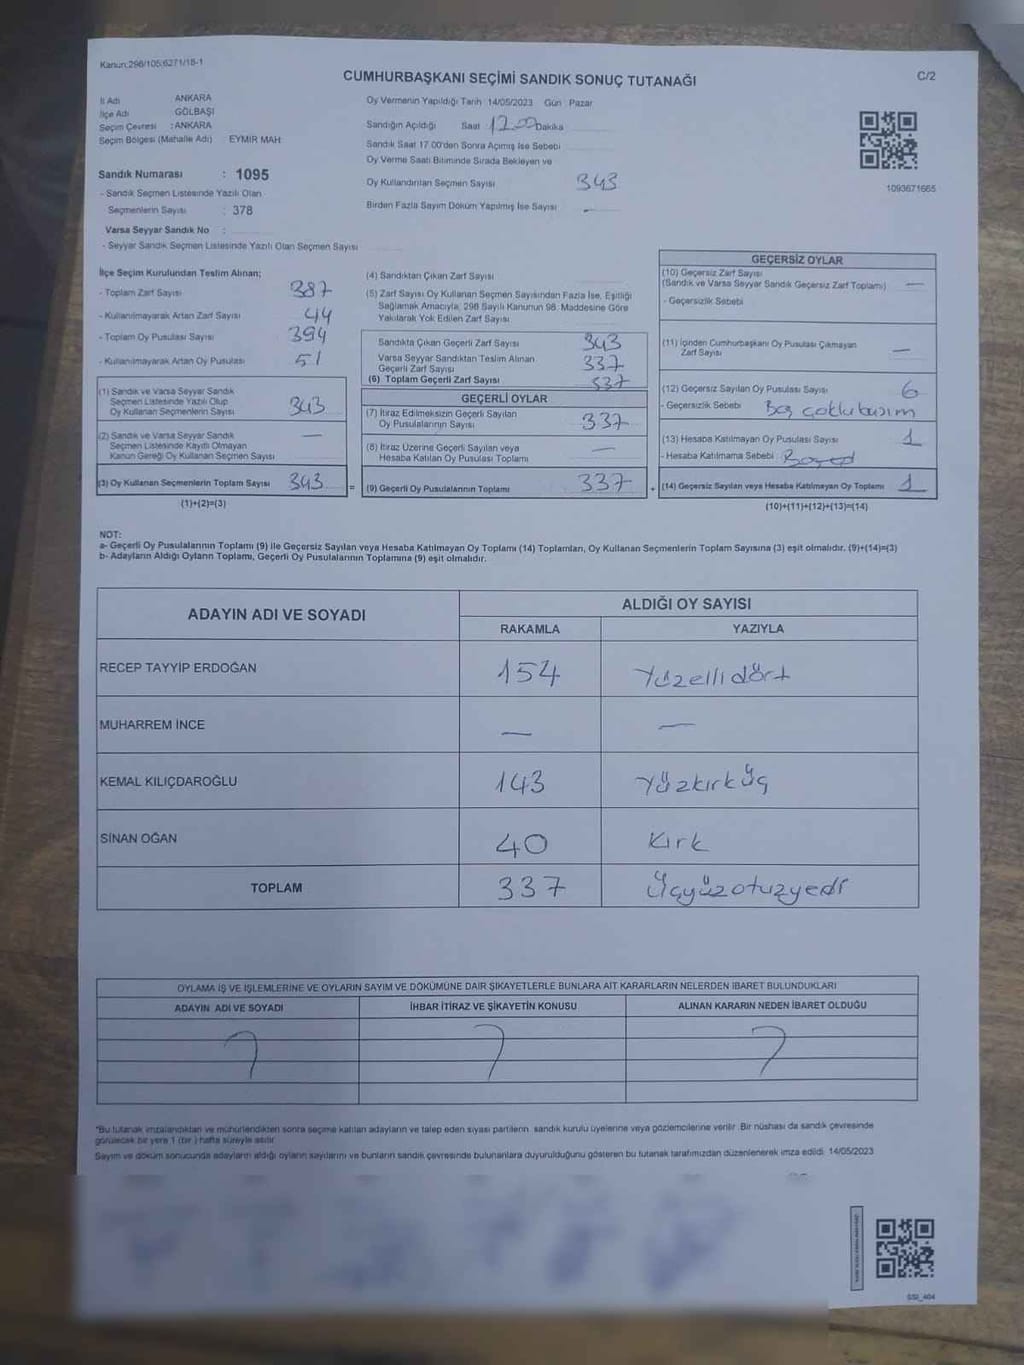 Kanun:298/105;6271/18-1
CUMHURBAŞKANI SEÇİMİ SANDIK SONUÇ TUTANAĞI
C/2
İl Adı ANKARA
İlçe Adı GÖLBAŞI
Seçim Çevresi : ANKARA
Seçim Bölgesi (Mahalle Adı) EYMİR MAH
Sandık Numarası : 1095
- Sandık Seçmen Listesinde Yazılı Olan
Seçmenlerin Sayısı : 378
Varsa Seyyar Sandık No :
- Seyyar Sandık Seçmen Listesinde Yazılı Olan Seçmen Sayısı
Oy Vermenin Yapıldığı Tarih 14/05/2023 Gün Pazar
Sandığın Açıldığı Saat Dakika
Sandık Saat 17.00'den Sonra Açımış İse Sebebi
Oy Verme Saati Bitiminde Sırada Bekleyen ve
Oy Kullandırılan Seçmen Sayısı 343
Birden Fazla Sayım Döküm Yapılmış İse Sayısı -
1093671665
İlçe Seçim Kurulundan Teslim Alınan;
- Toplam Zarf Sayısı 387
- Kullanılmayarak Artan Zarf Sayısı 44
- Toplam Oy Pusulası Sayısı 394
- Kullanılmayarak Artan Oy Pusulası 51
(1) Sandık ve Varsa Seyyar Sandık
Seçmen Listesinde Yazılı Olup
Oy Kullanan Seçmenlerin Sayısı 343
(2) Sandık ve Varsa Seyyar Sandık
Seçmen Listesinde Kayıtlı Olmayan
Kanun Gereği Oy Kullanan Seçmen Sayısı —
(3) Oy Kullanan Seçmenlerin Toplam Sayısı 343
(1)+(2)=(3)
=
(4) Sandıktan Çıkan Zarf Sayısı
(5) Zarf Sayısı Oy Kullanan Seçmen Sayısından Fazla İse, Eşitliği
Sağlamak Amacıyla, 298 Sayılı Kanunun 98. Maddesine Göre
Yakılarak Yok Edilen Zarf Sayısı
Sandıkta Çıkan Geçerli Zarf Sayısı 343
Varsa Seyyar Sandıktan Teslim Alınan
Geçerli Zarf Sayısı 337
(6) Toplam Geçerli Zarf Sayısı 337
GEÇERLİ OYLAR
(7) İtiraz Edilmeksizin Geçerli Sayılan
Oy Pusulalarının Sayısı 337
(8) İtiraz Üzerine Geçerli Sayılan veya
Hesaba Katılan Oy Pusulası Toplamı —
(9) Geçerli Oy Pusulalarının Toplamı 337
+
GEÇERSİZ OYLAR
(10) Geçersiz Zarf Sayısı
(Sandık ve Varsa Seyyar Sandık Geçersiz Zarf Toplamı) —
- Geçersizlik Sebebi
(11) İçinden Cumhurbaşkanı Oy Pusulası Çıkmayan
Zarf Sayısı —
(12) Geçersiz Sayılan Oy Pusulası Sayısı 6
- Geçersizlik Sebebi
(13) Hesaba Katılmayan Oy Pusulası Sayısı 1
- Hesaba Katılmama Sebebi
(14) Geçersiz Sayılan veya Hesaba Katılmayan Oy Toplamı 1
(10)+(11)+(12)+(13)=(14)
NOT:
a- Geçerli Oy Pusulalarının Toplamı (9) ile Geçersiz Sayılan veya Hesaba Katılmayan Oy Toplamı (14) Toplamları, Oy Kullanan Seçmenlerin Toplam Sayısına (3) eşit olmalıdır. (9)+(14)=(3)
b- Adayların Aldığı Oyların Toplamı, Geçerli Oy Pusulalarının Toplamına (9) eşit olmalıdır.
ADAYIN ADI VE SOYADI
ALDIĞI OY SAYISI
RAKAMLA YAZIYLA
RECEP TAYYİP ERDOĞAN 154 Yüzellidört
MUHARREM İNCE — —
KEMAL KILIÇDAROĞLU 143 Yüzkırküç
SİNAN OĞAN 40 Kırk
TOPLAM 337 Üçyüzotuzyedi
OYLAMA İŞ VE İŞLEMLERİNE VE OYLARIN SAYIM VE DÖKÜMÜNE DAİR ŞİKAYETLERLE BUNLARA AİT KARARLARIN NELERDEN İBARET BULUNDUKLARI
ADAYIN ADI VE SOYADI İHBAR İTİRAZ VE ŞİKAYETİN KONUSU ALINAN KARARIN NEDEN İBARET OLDUĞU
*Bu tutanak imzalandıktan ve mühürlendikten sonra seçime katılan adayların ve talep eden siyasi partilerin sandık kurulu üyelerine veya gözlemcilerine verilir. Bir nüshası da sandık çevresinde
görülecek bir yere 1 (bir) hafta süreyle asılır.
Sayım ve döküm sonucunda adayların aldığı oyların sayılarını ve bunların sandık çevresinde bulunanlara duyurulduğunu gösteren bu tutanak tarafımızdan düzenlenerek imza edildi. 14/05/2023